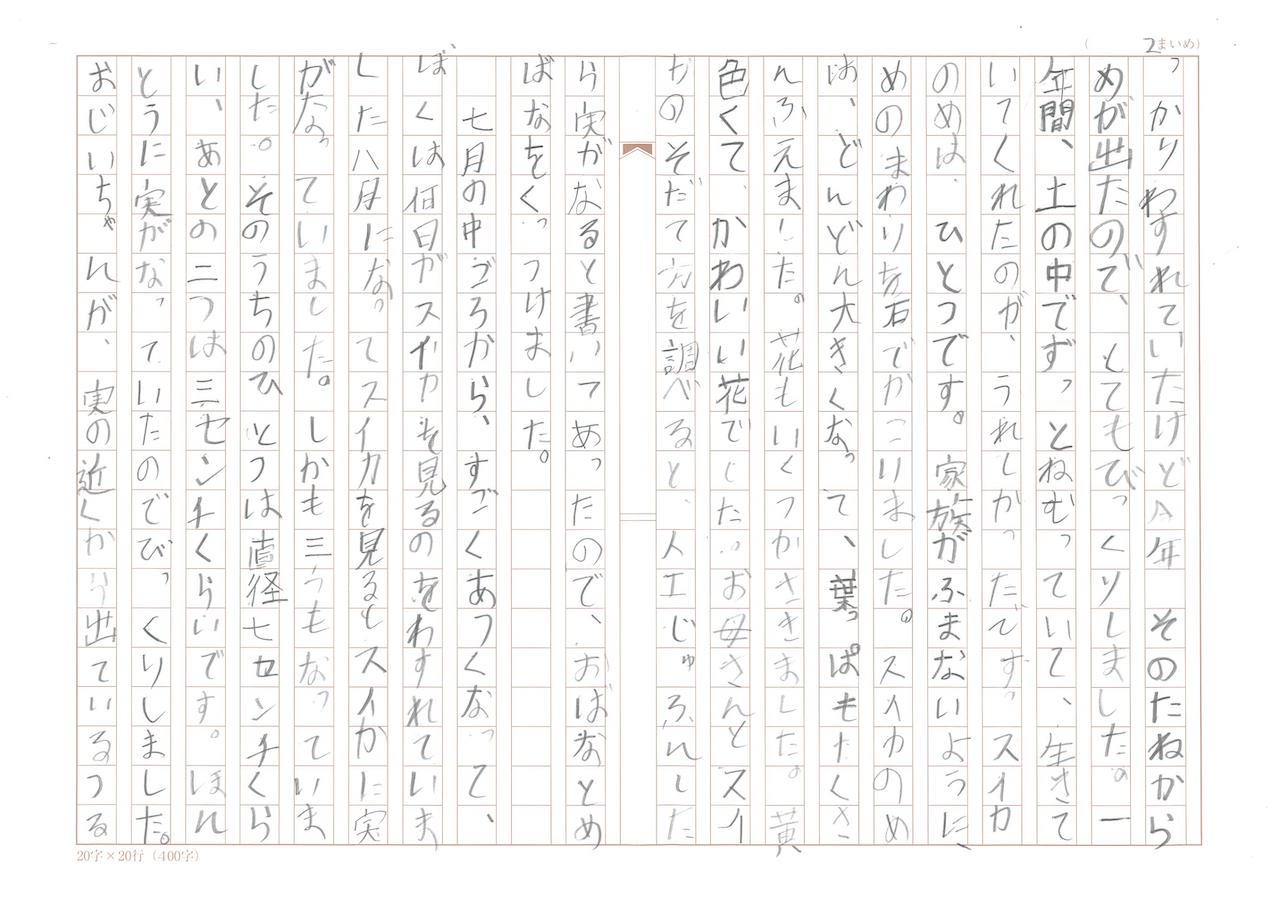 (2まいめ)
っかりわすれていたけど今年、そのたねから
めが出たので、とてもびっくりしました。一
年間、土の中でずっとねむっていて、生きて
いてくれたのが、うれしかったです。スイカ
のめは、ひとつです。家族がふまないように、
めのまわりを石でかこりました。スイカのめ
は、どんどん大きくなって、葉っぱもたくさ
んふえました。花もいくつかさきました。黄
色くて、かわいい花でした。お母さんとスイ
カのそだて方を調べると、人工じゅふんした
ら実がなると書いてあったので、おばなとめ
ばなをくっつけました。
七月の中ごろから、すごくあつくなって、
ぼくは何日かスイカを見るのをわすれていま
した八月になってスイカを見るとスイカに実
がなっていました。しかも三つもなっていま
した。そのうちのひとつは直径七センチくら
い、あとの二つは三センチくらいです。ほん
とうに実がなっていたのでびっくりしました。
おじいちゃんが、実の近くから出ているつる
20字×20行(400字)